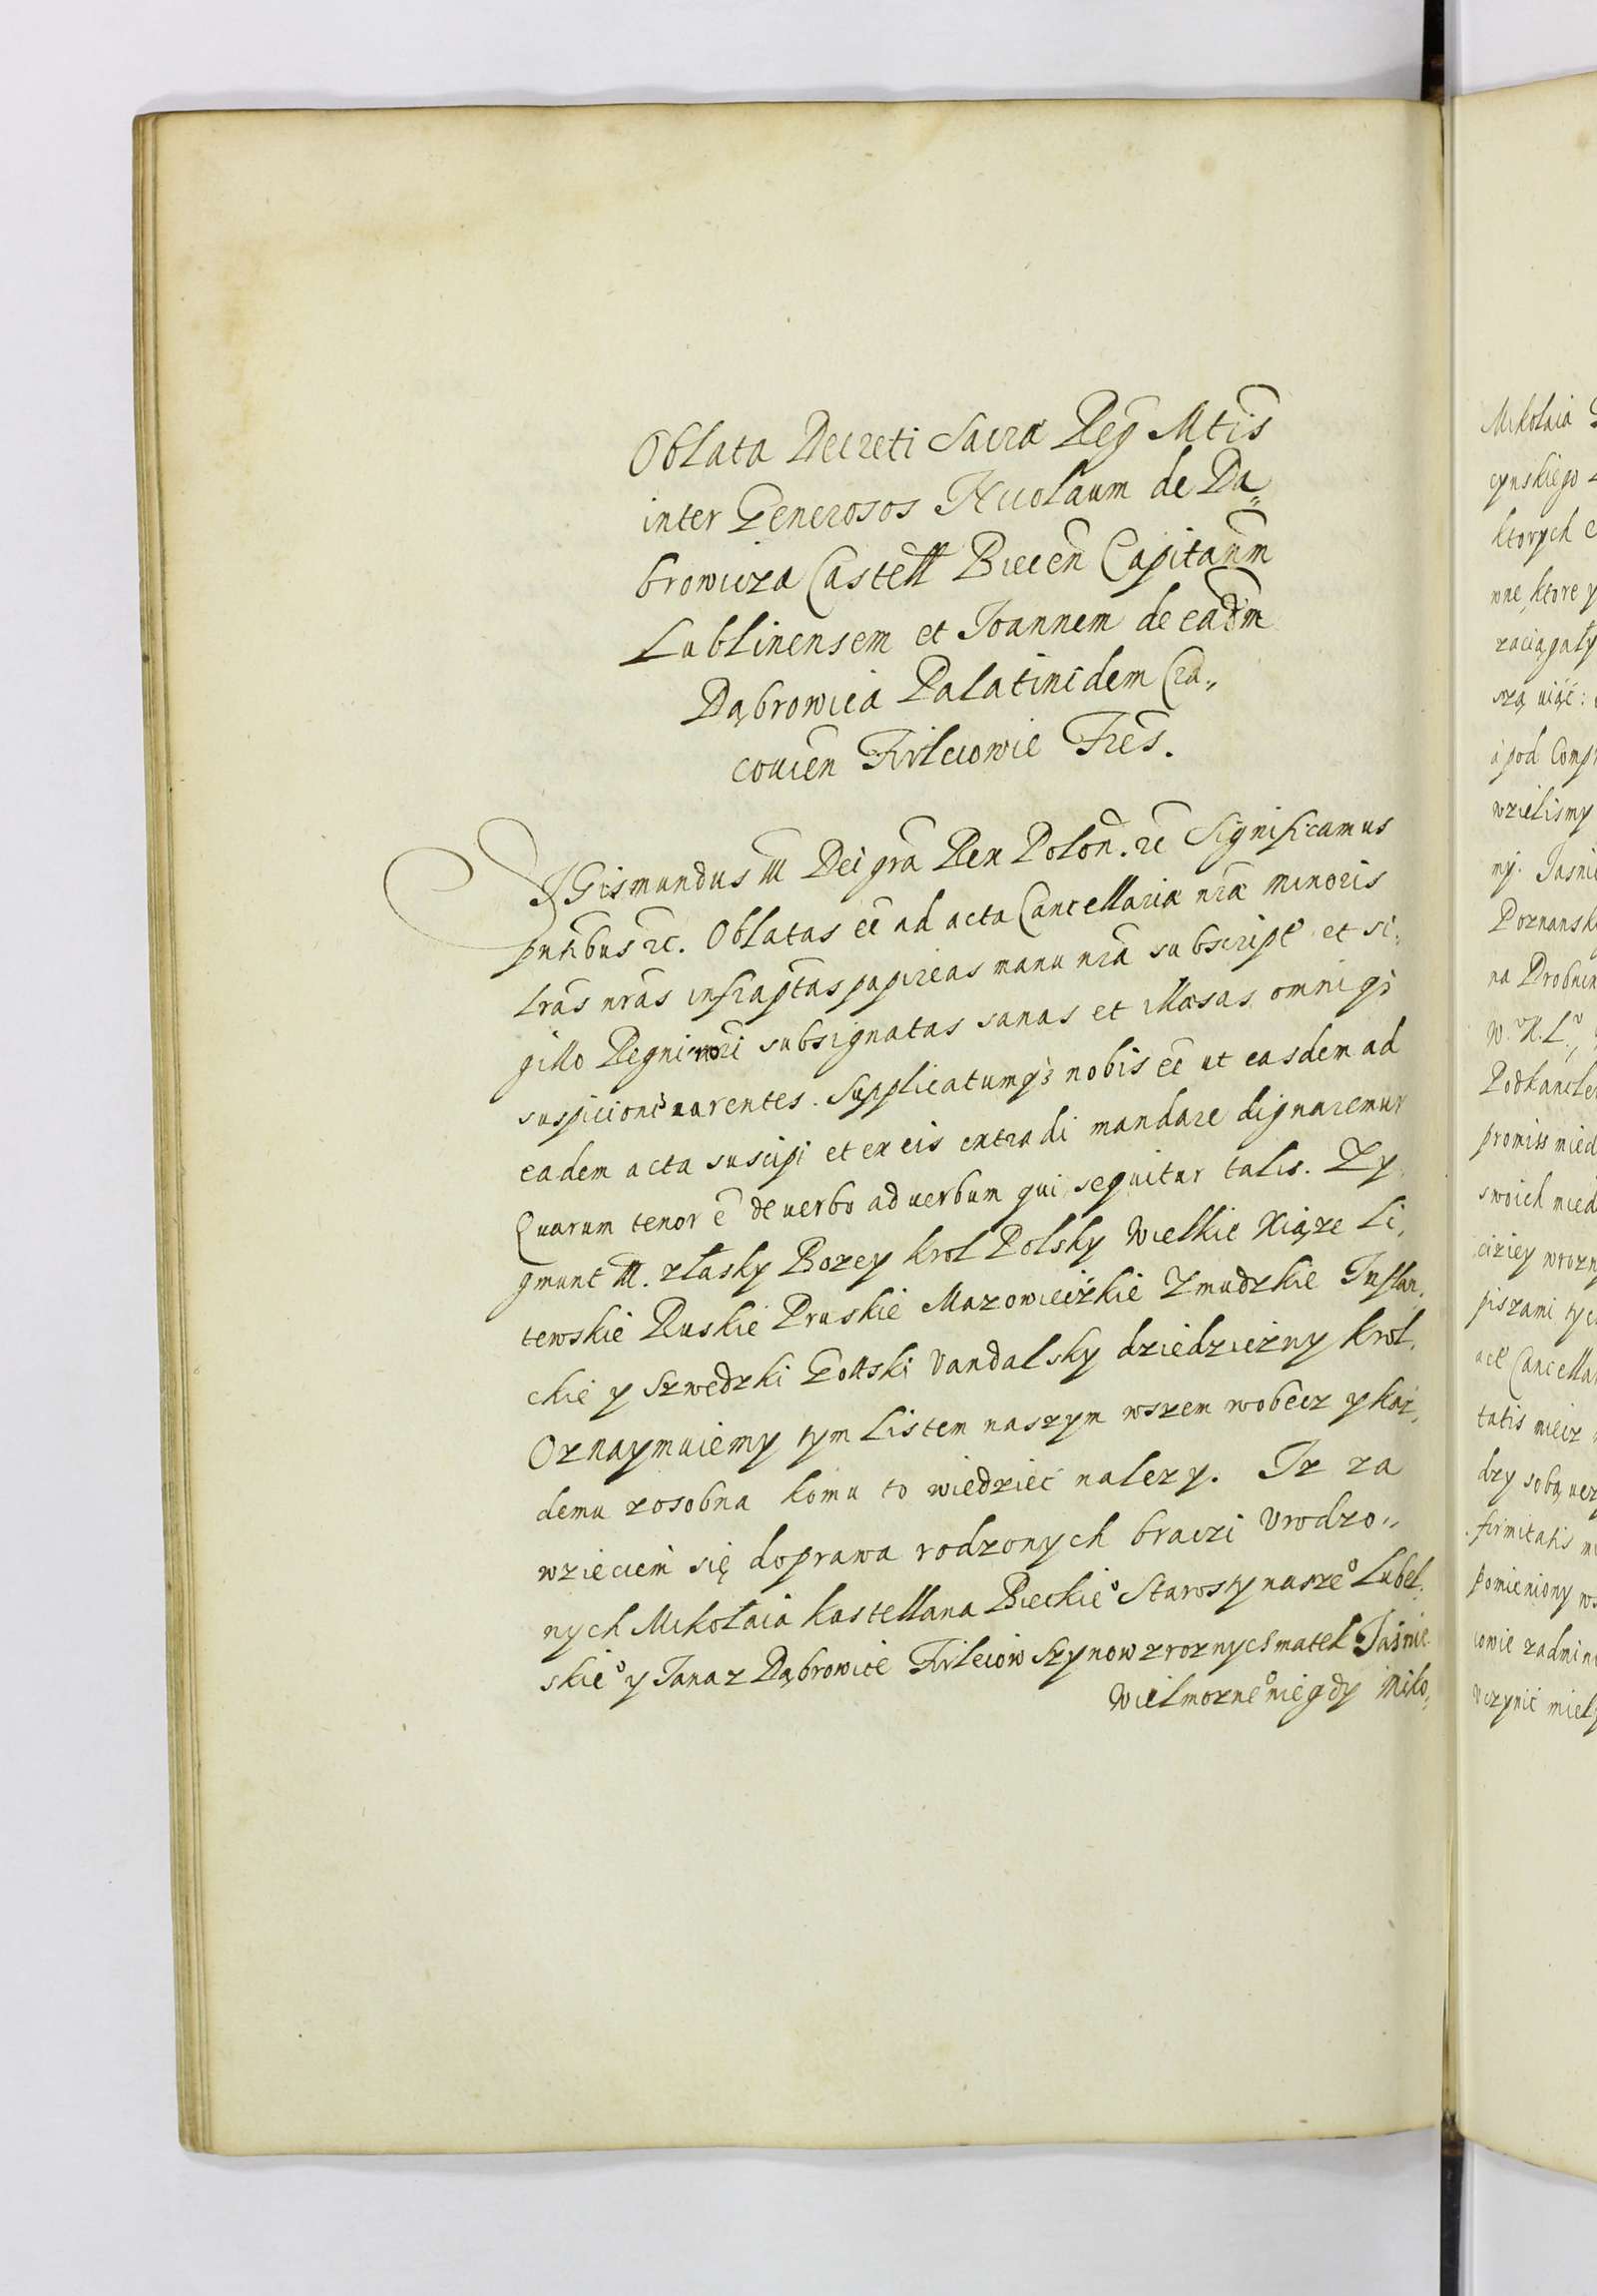 Oblata Decreti Sacræ Reg Mtis
inter Generosos Nicolaum de Da„
browicza Castell Biecen̄ Capitan̄m
Lublinensem et Joannem de ead̄m
Dąbrowica Palatinidem Cra„
covien̄ Firleiowie Frēs.
SIGismundus III Dei grā Rex Polon̄. rc Significamus
pn̄tibus rc. Oblatas eē ad acta Cancellariæ nr̄æ minoris
Lrās nrās infraptas papireas manu nrā subscript et si„
gillo Regni nr̄i subsignatas sanas et illæsas omniqȝ
suspicione carentes. Supplicatumqȝ nobis eē ut easdem ad
eadem acta suscipi et ex eis extradi mandare dignaremur
Quarum tenor ē de verbo ad verbum qui sequitur talis. Zy„
gmunt III. z łasky Bozey Krol Polsky Wielkie Xiąze Li„
tewskie Ruskie Pruskie Mazowieczkie Zmudzkie Inflan„
ckie y Szwedzki Gottski Vandalsky dziedziczny Krol.
Oznaymuiemy tym Listem naszym wszem wobecz y kaz„
demu zosobna komu to wiedzieć nalezy. Iz za
wzieciem się doprawa rodzonych braczi Vrodzo„
nych Mikołaia Kastellana Bieckieº Starosty naszeº Lubel„
skieº y Jana z Dąbrowice Firleiow Szynow z roznych matek Jaśnie
Wielmozneº niegdy Miko„
Mikołaia
cynskiego
ktorych
wne, ktore y
zaciągały
szą uiąć:
a pod Comp
wzielismy
mj. Jasnie
Poznansk
na
W. X. L.
Podkancle
promiss mied
swoich mied
wrozn
piszami tyc
act Cancella
tatis miecz
dzy sobą
firmitatis
pomieniony
iowie
Vczynić miely